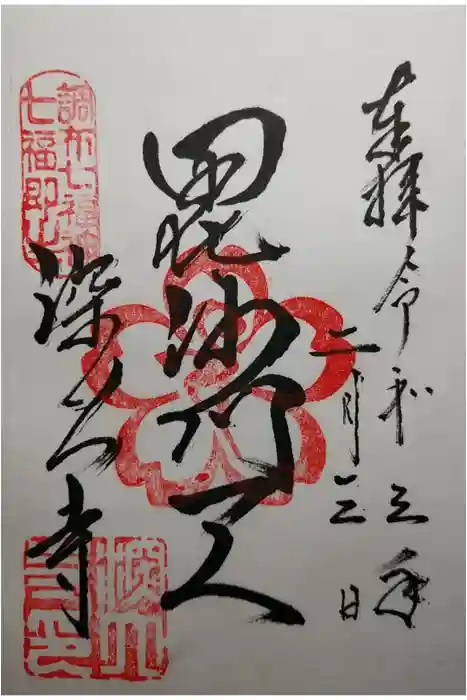 奉拝令和三年
二月三日
毘沙門天
調布七福神
深大寺
深大
寺印